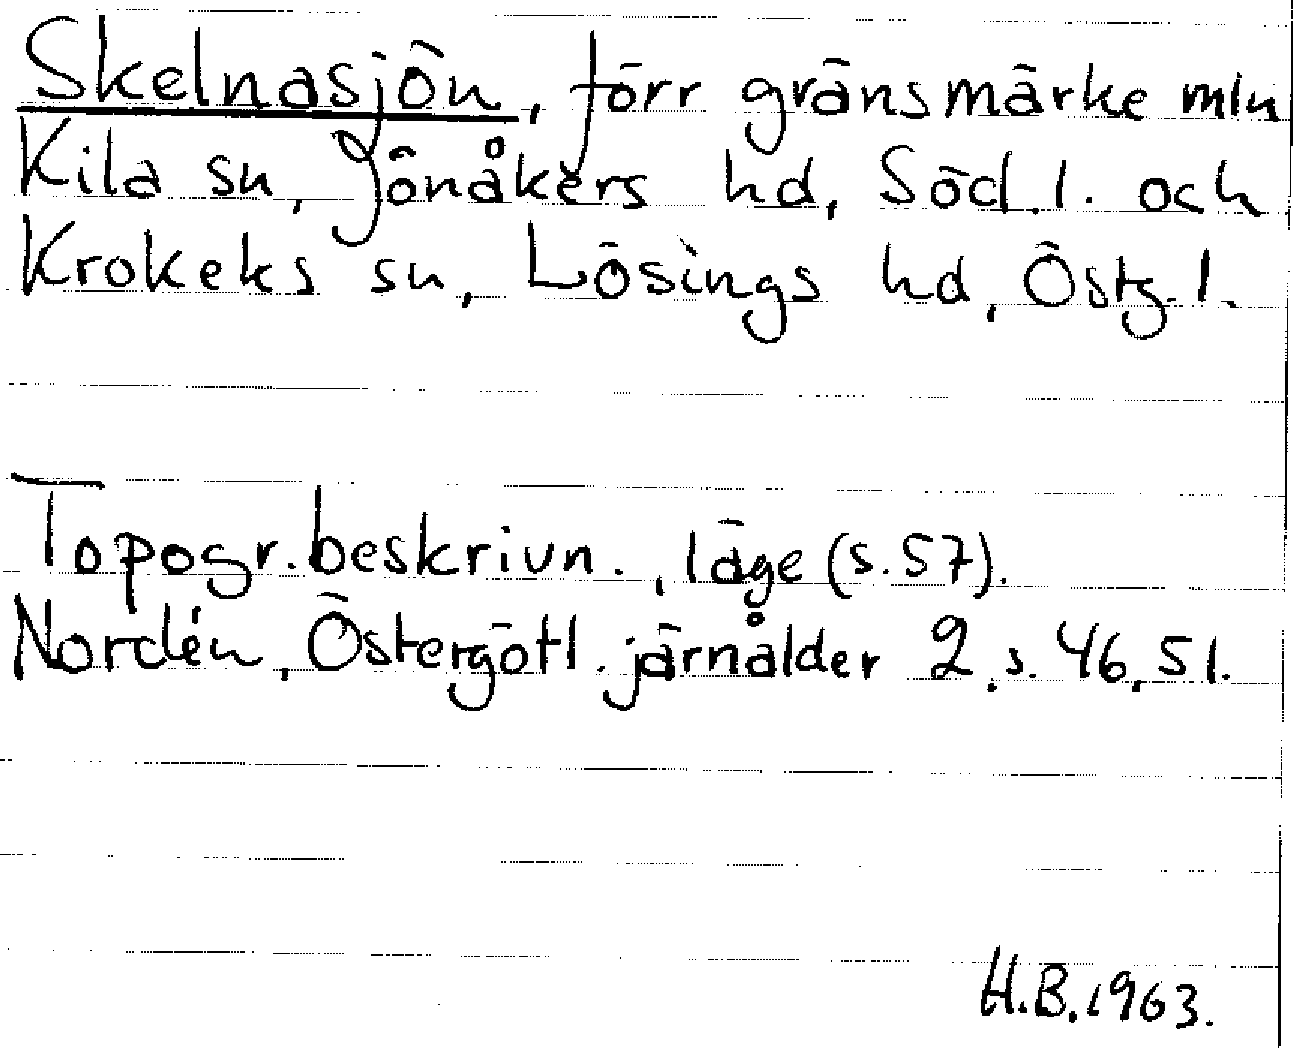 Skelnasjön, förr gränsmärke mln
Kila sn, Jönåkers hd, Söd.l. och
Krokeks sn, Lösings hd, Östg.l.
Topogr.beskrivn., läge (s.57).
Nordén, Östergötl. järnålder 2.s.46,51.
H.B.1963.